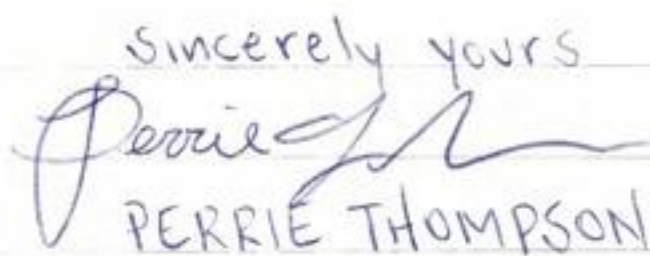 sincerely yours
Perrie Th
PERRIE THOMPSON